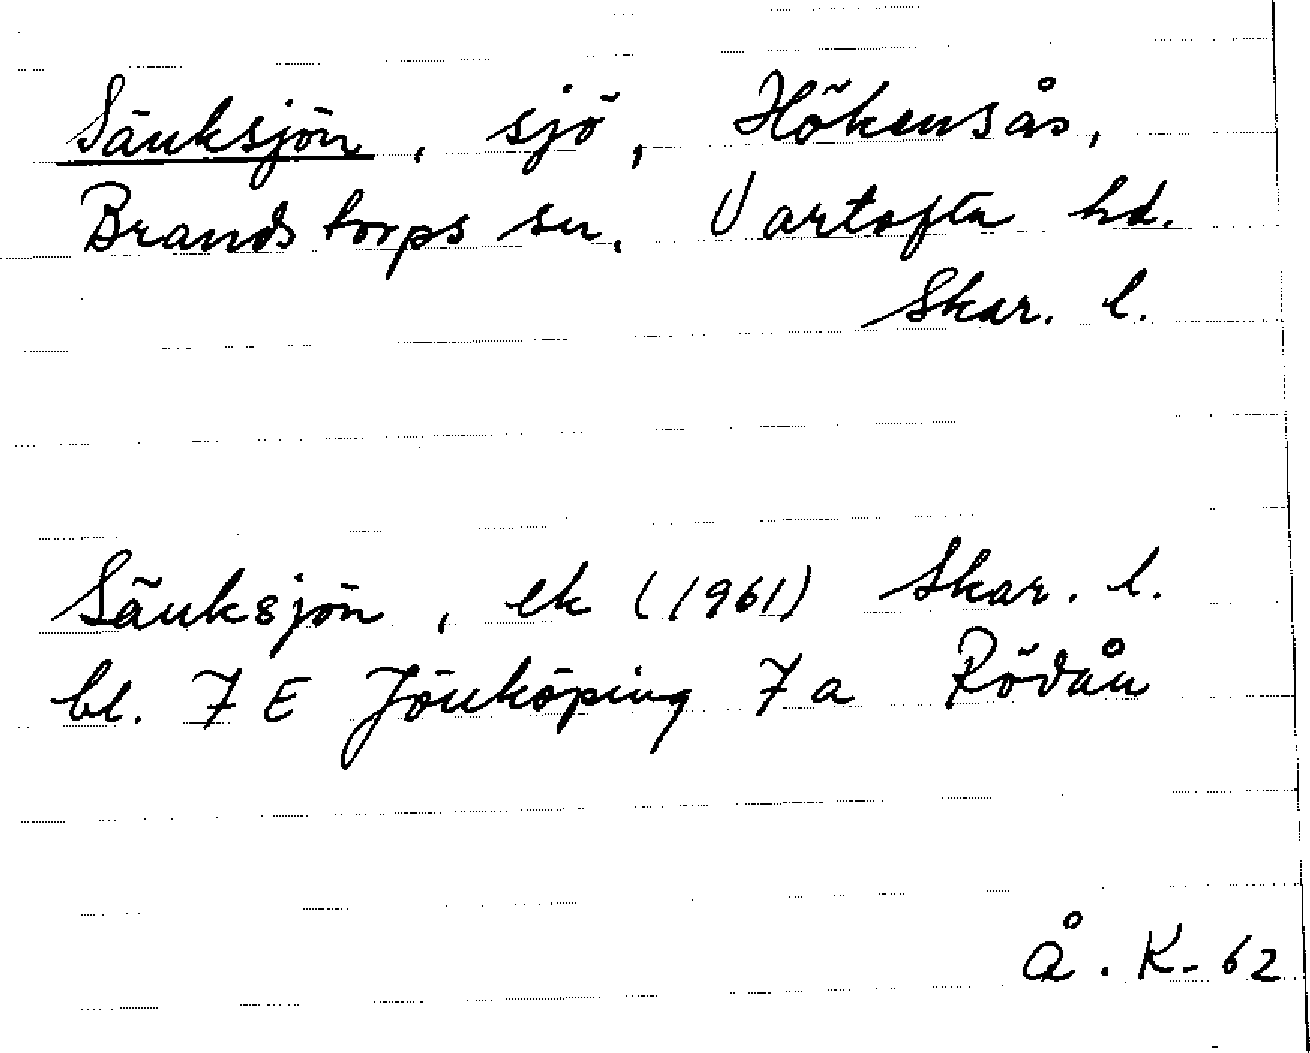 Sänksjön, sjö, Hökensås,
Brandstorps sn. Vartofta hd.
Skar. l.
Sänksjön, ek (1961) Skar. l.
bl. 7 E Jönköping 7 a Rödån
Å. K-62